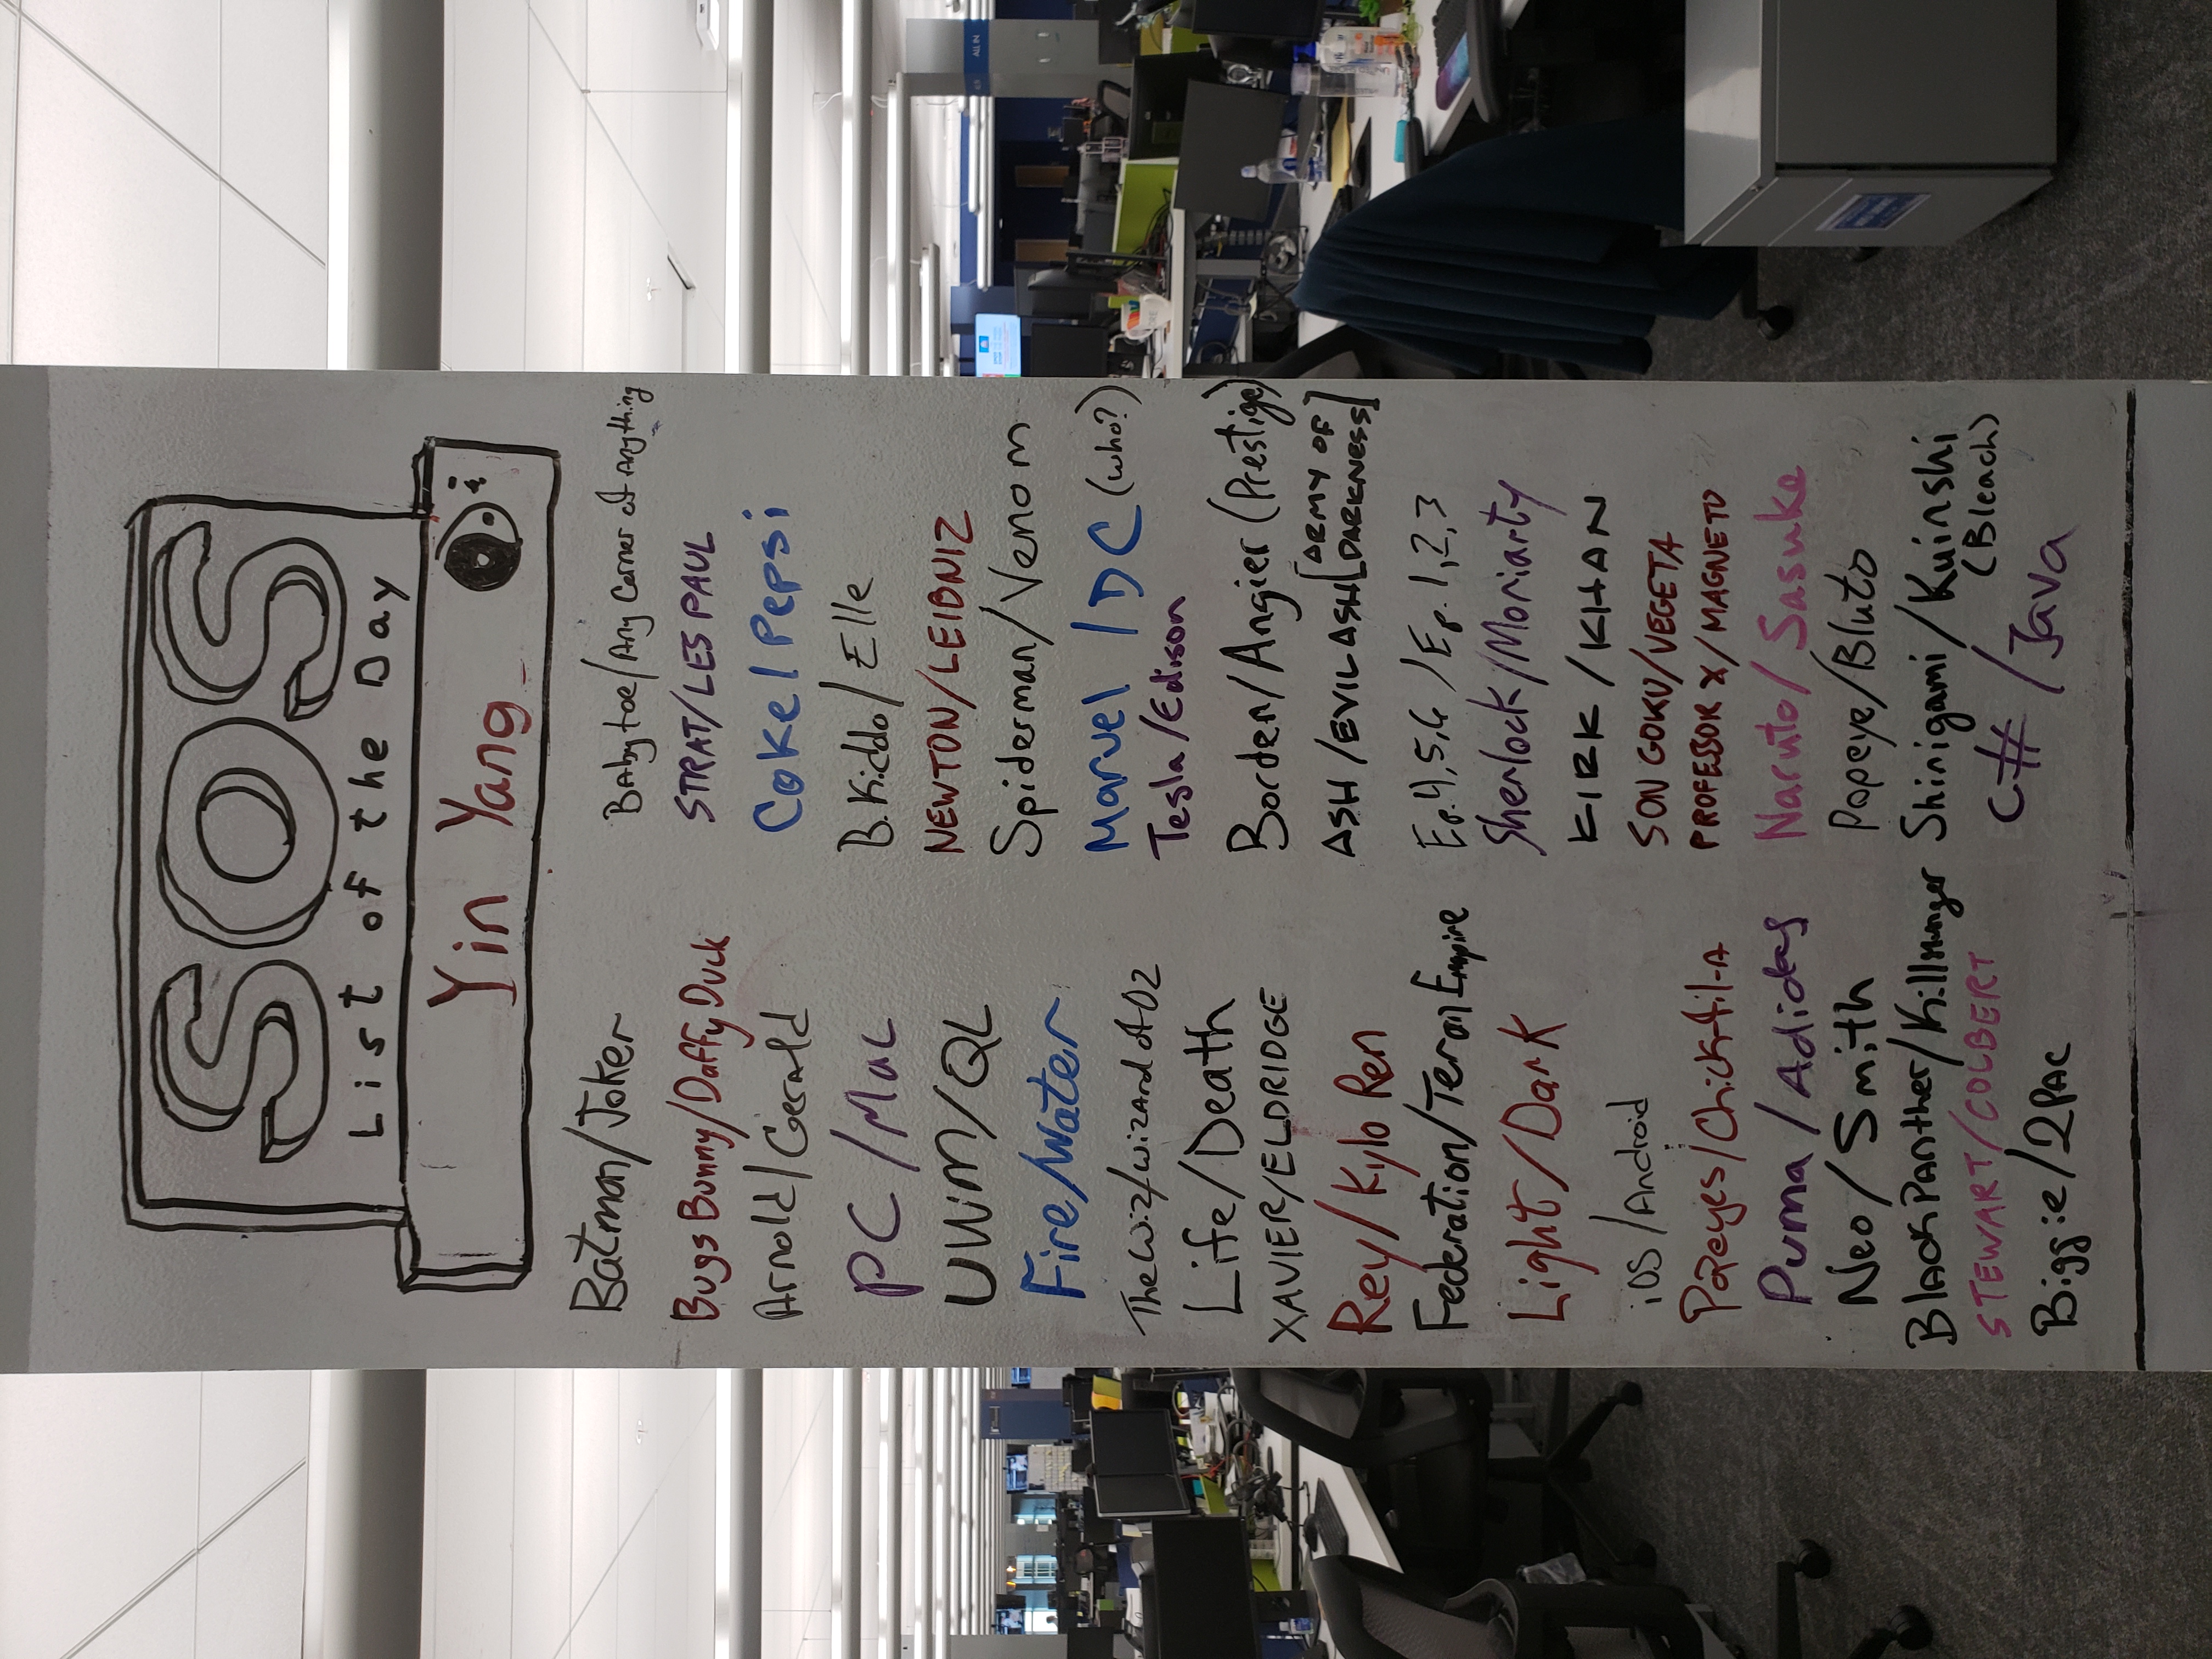 SOS
List of the Day
Yin Yang
Batman/Joker
Bugs Bunny/Daffy Duck
Arnold/Gerald
PC/Mac
UWM/QL
Fire/Water
The Wiz/Wizard of Oz
Life/Death
XAVIER/ELDRIDGE
Rey/Kylo Ren
Federation/Teran Empire
Light/Dark
iOS/Android
Popeyes/Chick-fil-A
Puma/Adidas
Neo/Smith
Black Panther/Killmunger
STEWART/COLBERT
Biggie/2PAC
Baby toe/Any Corner of Anything
STRAT/LES PAUL
Coke/Pepsi
B. Kiddo/Elle
NEWTON/LEIBNIZ
Spiderman/Venom
Marvel/DC (who?)
Tesla/Edison
Borden/Angier (Prestige)
ASH/EVIL ASH [ARMY OF
DARKNESS]
Ep. 4,5,6/Ep. 1,2,3
Sherlock/Moriarty
KIRK/KHAN
SON GOKU/VEGETA
PROFESSOR X/MAGNETO
Naruto/Sasuke
Popeye/Bluto
Shinigami/Kuinshi
(Bleach)
C#/Java
ALL IN